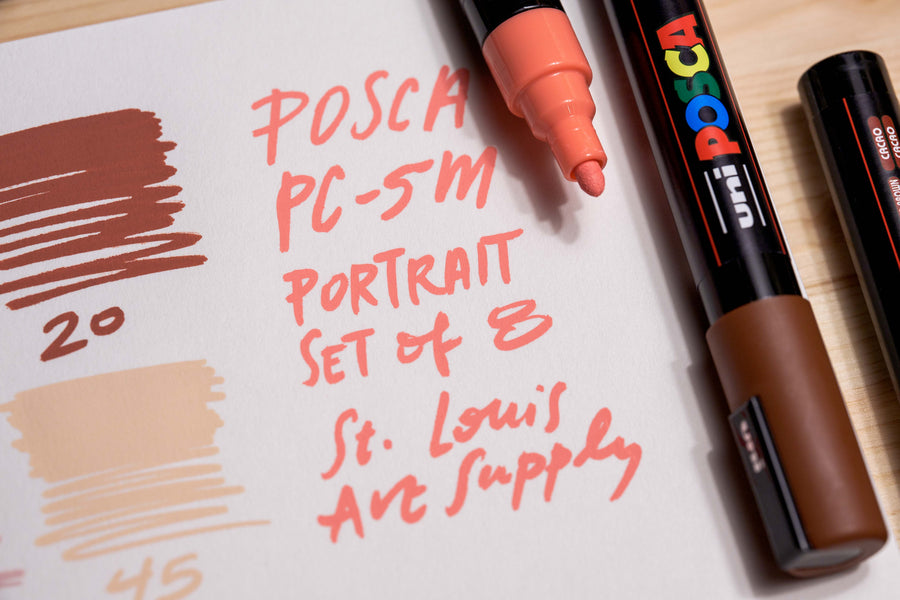 POSCA
PC-5M
PORTRAIT
SET of 8
St. Louis
Art Supply
20
45
uni POSCA
uni
CACAO
CACAO
BROWN